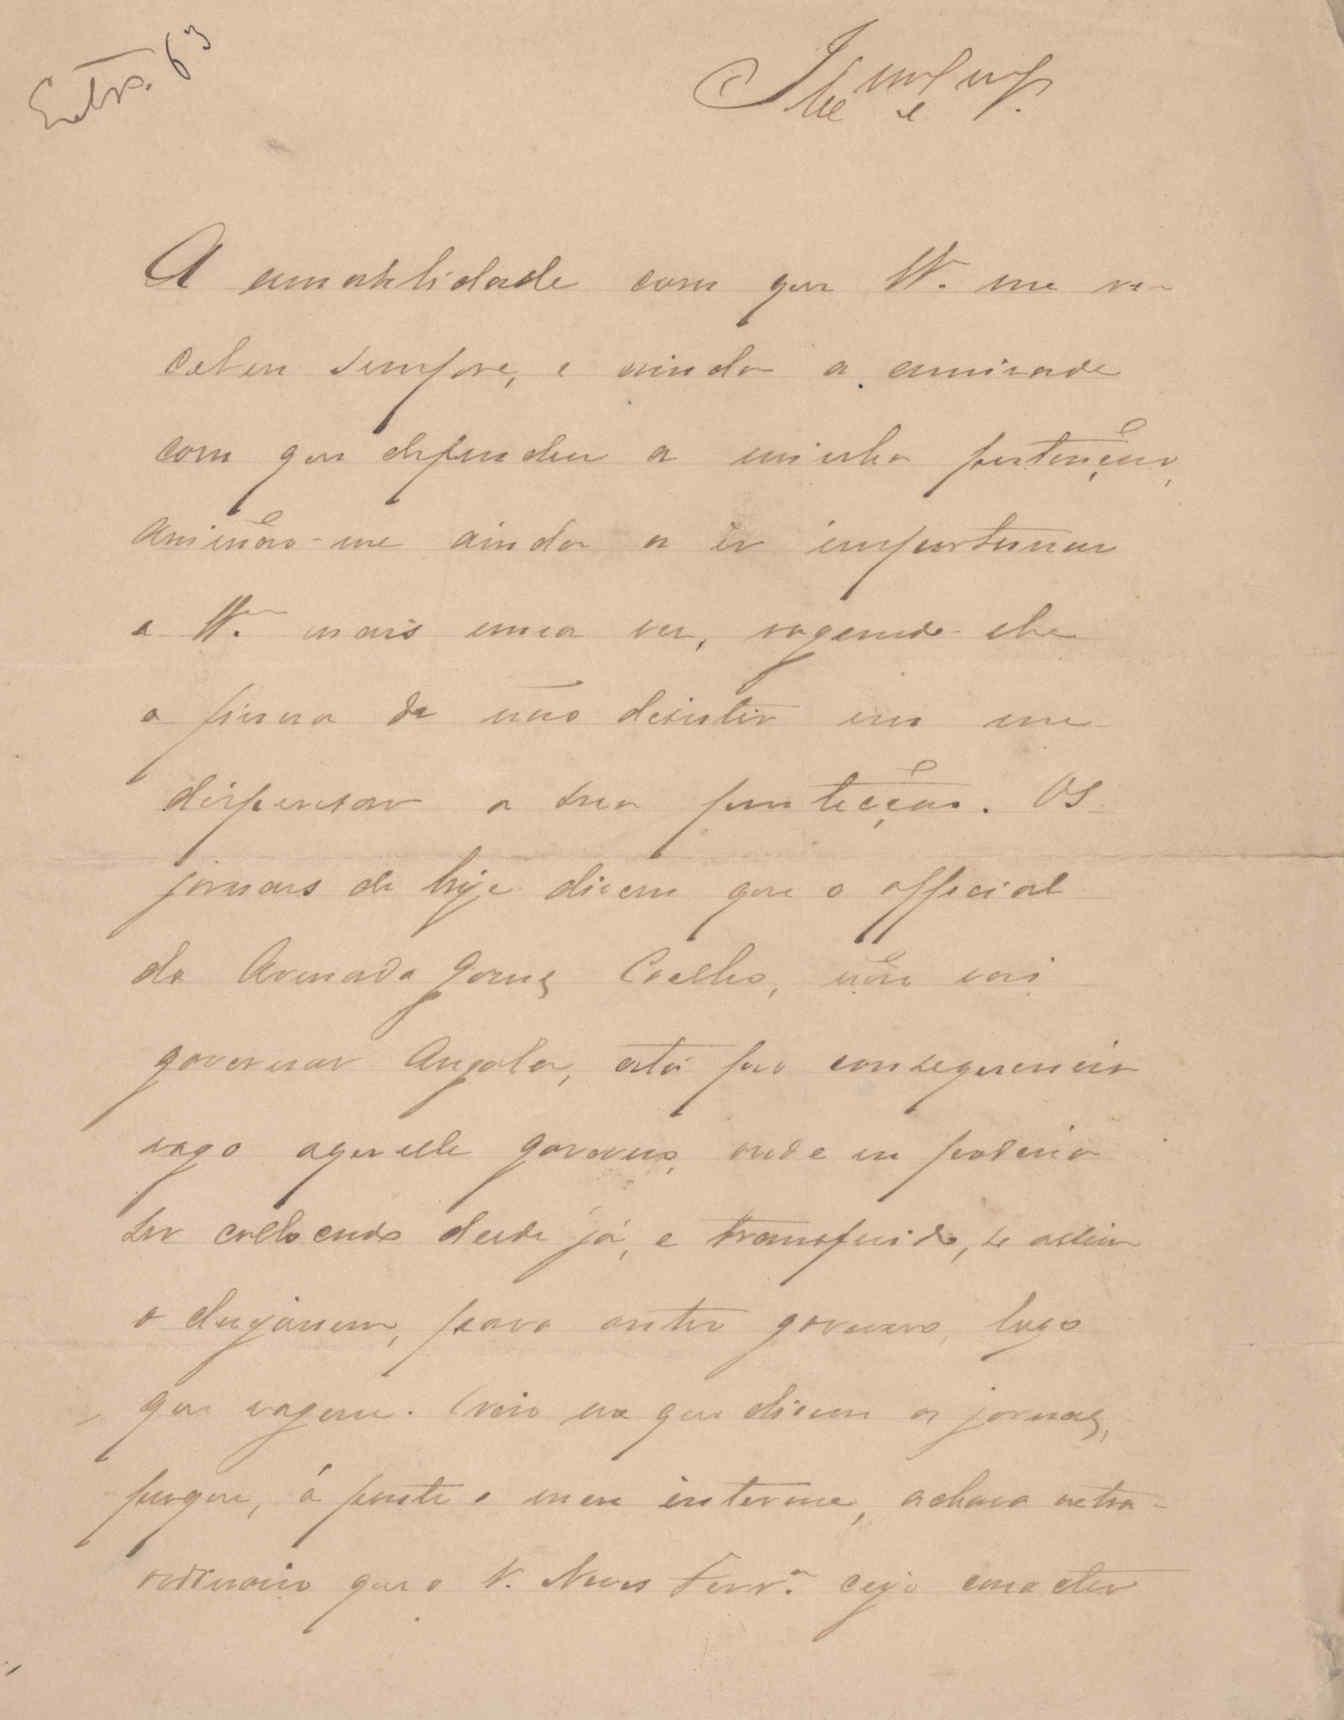 A amabilidade com que V. me re-
cebeu sempre, e ainda a amisade
com que defendeu a minha pretenção,
animão-me ainda a ir importunar
a V. mais uma vez, rogando-lhe
a fineza de não desistir em me
dispensar a sua protecção. Os
jornaes de hoje dizem que o official
da Armada Gomes Coelho, não vai
governar Angola, está por consequencia
vago aquelle governo, onde eu poderia
ser collocado desde já, e transferido, se assim
o desejarem, para outro governo, logo
que vague. Creio no que dizem os jornaes,
porque, á parte o meu interesse, achava extra-
ordinario que o V. Neves Ferrª cujo caracter